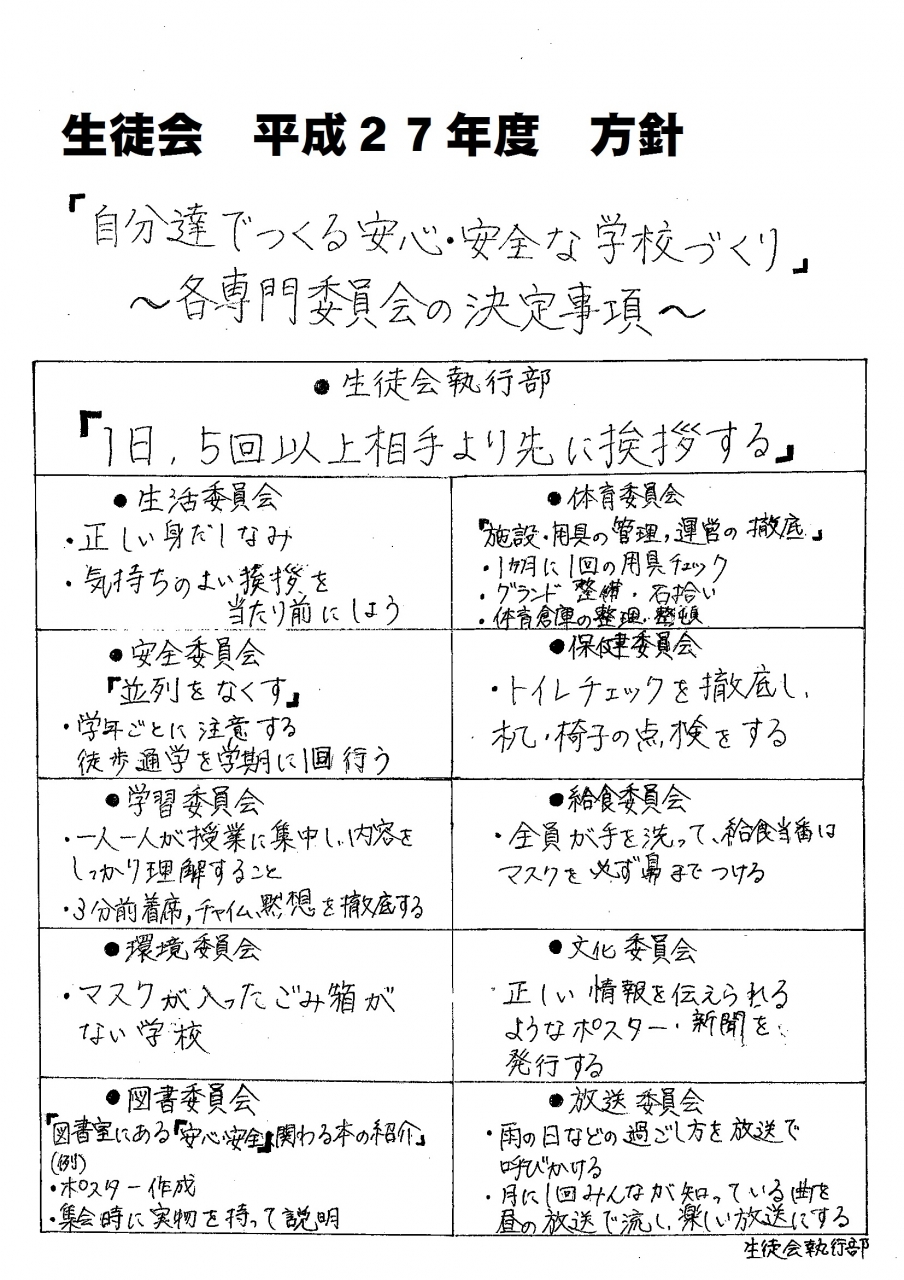 生徒会　平成２７年度　方針
『自分達でつくる安心・安全な学校づくり』
～各専門委員会の決定事項～
●生徒会執行部
『1日，5回以上相手より先に挨拶する』
●生活委員会
・正しい身だしなみ
・気持ちのよい挨拶を
当たり前にしよう
●体育委員会
『施設・用具の管理，運営の徹底』
・1ヵ月に1回の用具チェック
・グランド整備・石拾い
・体育倉庫の整理・整頓
●安全委員会
『並列をなくす』
・学年ごとに注意する
徒歩通学を学期に1回行う
●保健委員会
・トイレチェックを徹底し、
机・椅子の点検をする
●学習委員会
・一人一人が授業に集中し、内容を
しっかり理解すること
・3分前着席，チャイム黙想を徹底する
●給食委員会
・全員が手を洗って、給食当番は
マスクを必ず鼻までつける
●環境委員会
・マスクが入ったごみ箱が
ない学校
●文化委員会
正しい情報を伝えられる
ようなポスター・新聞を
発行する
●図書委員会
『図書室にある『安心安全』関わる本の紹介』
(例)
・ポスター作成
・集会時に実物を持って説明
●放送委員会
・雨の日などの過ごし方を放送で
呼びかける
・月に1回みんなが知っている曲を
昼の放送で流し、楽しい放送にする
生徒会執行部